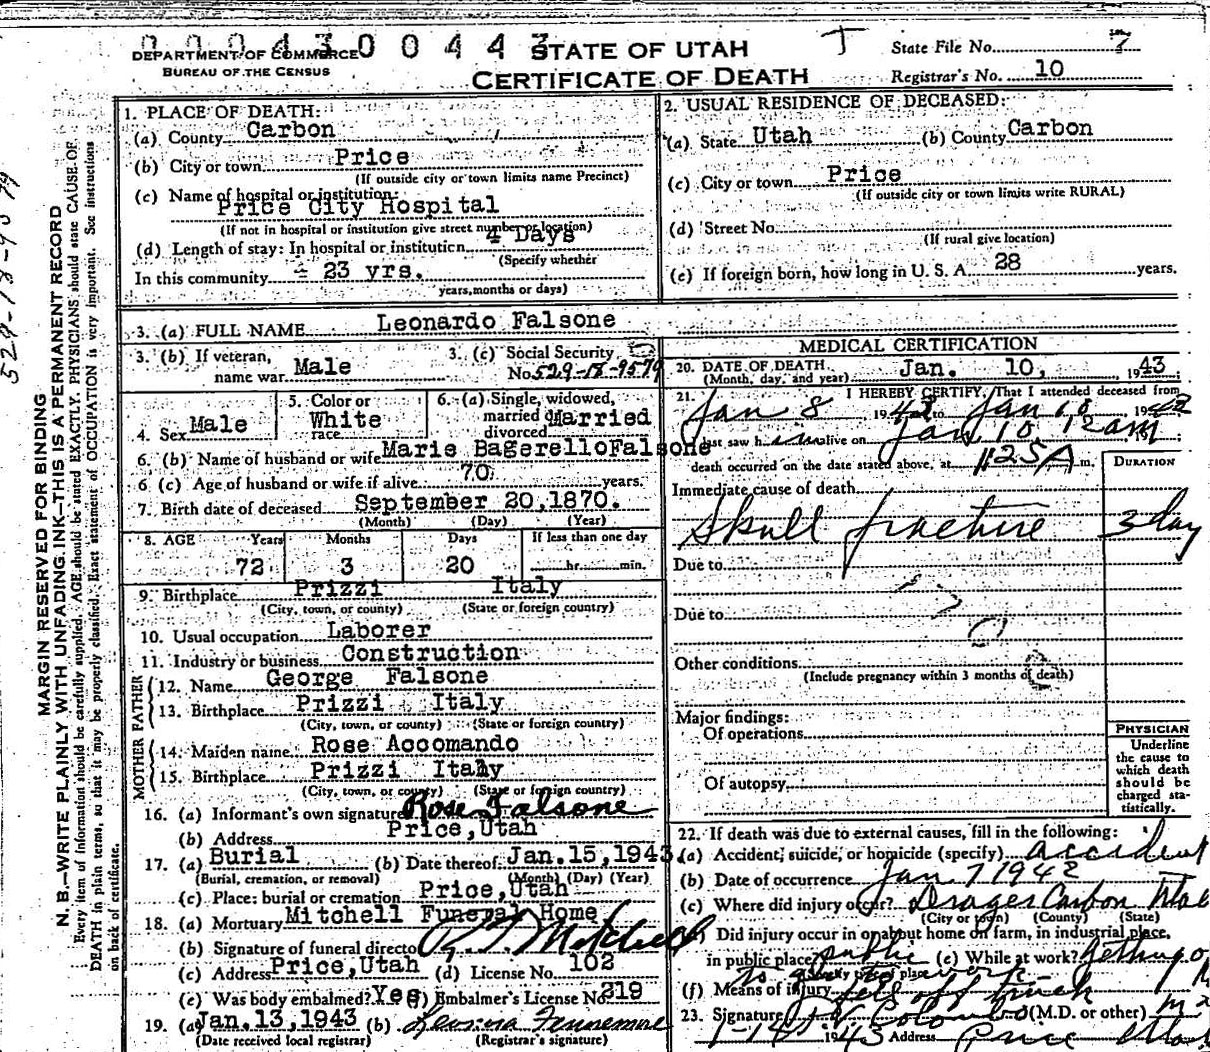 0 0 0 4 3 0 0 4 4 3
DEPARTMENT OF COMMERCE
BUREAU OF THE CENSUS
STATE OF UTAH
CERTIFICATE OF DEATH
T
State File No. 7
Registrar's No. 10
529-18-9579
MARGIN RESERVED FOR BINDING
N. B.—WRITE PLAINLY WITH UNFADING INK—THIS IS A PERMANENT RECORD
Every item of information should be carefully supplied. AGE should be stated EXACTLY. PHYSICIANS should state CAUSE OF
DEATH in plain terms, so that it may be properly classified. Exact statement of OCCUPATION is very important. See instructions
on back of certificate.
1. PLACE OF DEATH:
(a) County Carbon
(b) City or town Price
(If outside city or town limits name Precinct)
(c) Name of hospital or institution:
Price City Hospital
(If not in hospital or institution give street number or location)
(d) Length of stay: In hospital or institution 4 Days
(Specify whether
In this community 23 yrs.
years, months or days)
2. USUAL RESIDENCE OF DECEASED:
(a) State Utah (b) County Carbon
(c) City or town Price
(If outside city or town limits write RURAL)
(d) Street No.
(If rural give location)
(e) If foreign born, how long in U. S. A. 28 years.
3. (a) FULL NAME Leonardo Falsone
3. (b) If veteran,
name war Male
3. (c) Social Security
No. 529-18-9579
4. Sex Male
5. Color or
race White
6. (a) Single, widowed,
married or
divorced Married
6. (b) Name of husband or wife Marie BagerelloFalsone
6 (c) Age of husband or wife if alive 70 years.
7. Birth date of deceased September 20,1870.
(Month) (Day) (Year)
8. AGE Years Months Days If less than one day
72 3 20 hr. min.
9. Birthplace Prizzi Italy
(City, town, or county) (State or foreign country)
10. Usual occupation Laborer
11. Industry or business Construction
FATHER
12. Name George Falsone
13. Birthplace Prizzi Italy
(City, town, or county) (State or foreign country)
MOTHER
14. Maiden name Rose Accomando
15. Birthplace Prizzi Italy
(City, town, or county) (State or foreign country)
16. (a) Informant's own signature Rose Falsone
(b) Address Price,Utah
17. (a) Burial (b) Date thereof Jan.15,1943
(Burial, cremation, or removal) (Month) (Day) (Year)
(c) Place: burial or cremation Price,Utah
18. (a) Mortuary Mitchell Funeral Home
(b) Signature of funeral director R. T. Mitchell
(c) Address Price,Utah (d) License No. 102
(e) Was body embalmed? Yes (f) Embalmer's License No. 219
19. (a) Jan.13,1943 (b)
(Date received local registrar) (Registrar's signature)
MEDICAL CERTIFICATION
20. DATE OF DEATH Jan. 10, 1943
(Month, day, and year)
21. I HEREBY CERTIFY, That I attended deceased from
Jan 8 1942 to Jan 10, 1942
I last saw him alive on Jan 10 12am 19 ;
death occurred on the date stated above, at 1:25A m.
DURATION
Immediate cause of death
Skull fracture 3 day
Due to
Due to
Other conditions
(Include pregnancy within 3 months of death)
Major findings:
Of operations
Of autopsy
PHYSICIAN
Underline
the cause to
which death
should be
charged sta-
tistically.
22. If death was due to external causes, fill in the following:
(a) Accident, suicide, or homicide (specify) accident
(b) Date of occurrence Jan 7 1942
(c) Where did injury occur? Drager Carbon Utah
(City or town) (County) (State)
(d) Did injury occur in or about home on farm, in industrial place,
in public place? public (e) While at work? Getting on
(Specify type of place)
to work
(f) Means of injury fell off truck
23. Signature Colombo (M.D. or other)
1-14-1943 Address Price Utah